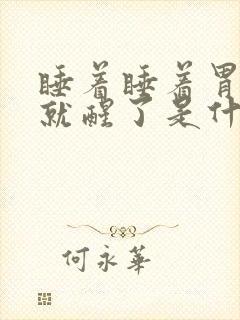 睡着睡着胃
就醒了是什
何永華